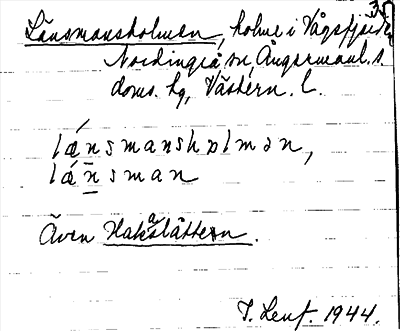 Länsmansholmen, holme i Vågsfjärden
Nordingrå sn, Ångermanl. s.
doms. hg, Västern. l.
lǽnsmanshɒlmən,
lǽnsman
Även Hakaslåttern.
J. Lenf. 1944.